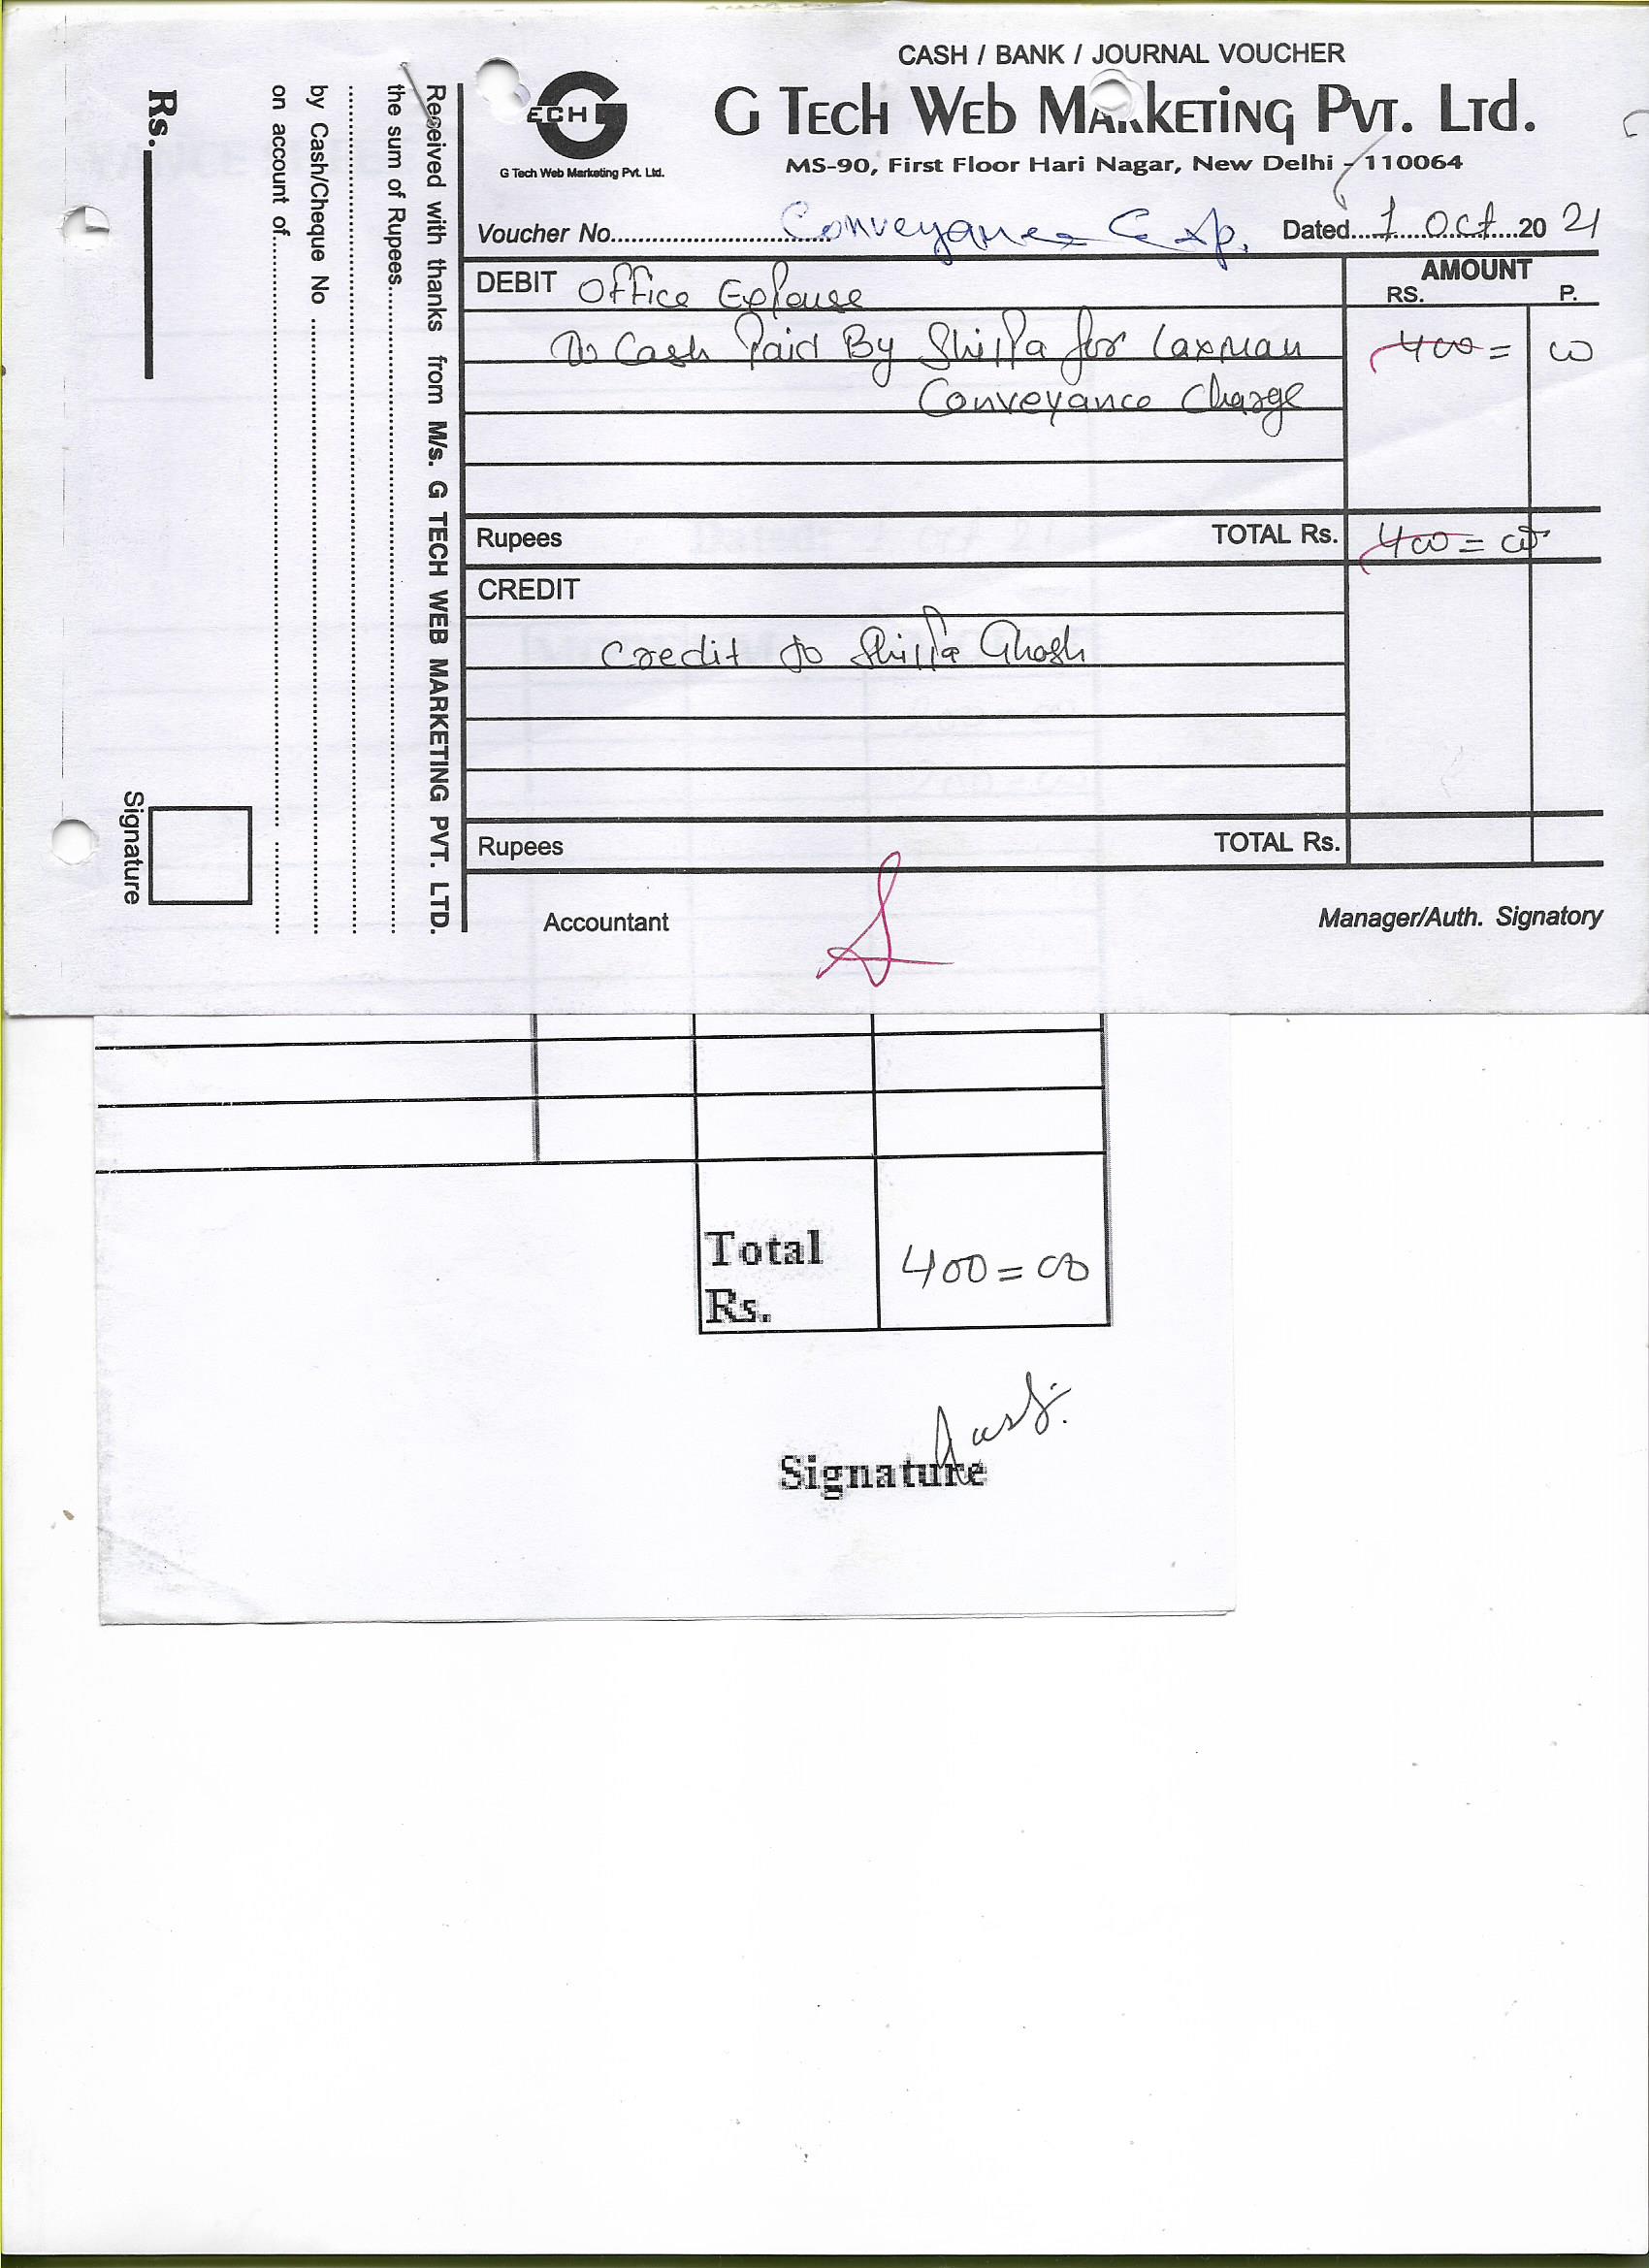 CASH / BANK / JOURNAL VOUCHER
G Tech Web Marketing Pvt. Ltd.
ECH G
G Tech Web Marketing Pvt. Ltd.
MS-90, First Floor Hari Nagar, New Delhi - 110064
Voucher No. Conveyance Exp. Dated 1 Oct 2021
DEBIT Office Expense AMOUNT
RS. P.
To Cash Paid By Shilpa for Laxman 400 = 00
Conveyance Charge
Rupees TOTAL Rs. 400 = 00
CREDIT
Credit to Shilpa Ghosh
Rupees TOTAL Rs.
Accountant Manager/Auth. Signatory
Received with thanks from M/s. G TECH WEB MARKETING PVT. LTD.
the sum of Rupees
by Cash/Cheque No
on account of
Rs.
Signature
Total 400=00
Rs.
Signature